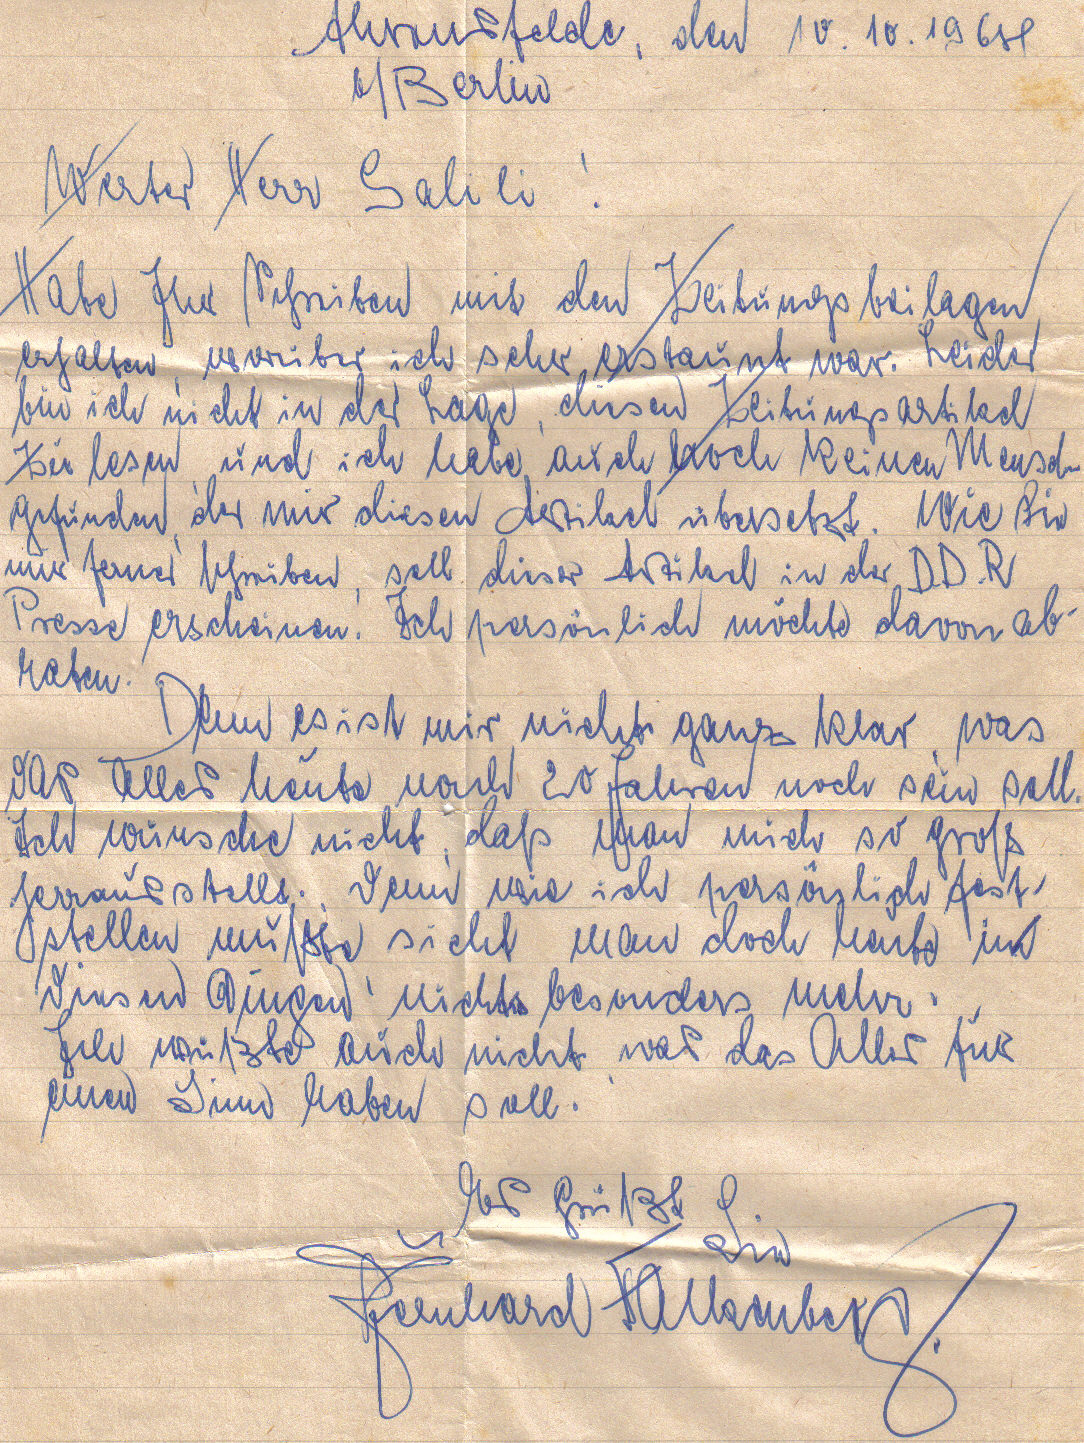 Ahrensfelde, den 10.10.1964
b/Berlin
Werter Herr Galili!
Habe Ihr Schreiben mit den Zeitungsbeilagen
erhalten, worüber ich sehr erstaunt war. Leider
bin ich nicht in der Lage, diesen Zeitungsartikel
zu lesen, und ich habe auch noch keinen Mensch
gefunden, der mir diesen Artikel übersetzt. Wie Sie
mir ferner schreiben, soll dieser Artikel in der D.D.R
Presse erscheinen. Ich persönlich möchte davon ab-
raten.
Denn es ist mir nicht ganz klar, was
das Alles heute nach 20 Jahren noch sein soll.
Ich wünsche nicht, daß man mich so groß
herrausstellt. Denn wie ich persönlich fest-
stellen mußte sieht man doch heute in
diesen Dingen nichts besonders mehr.
Ich wüßte auch nicht, was das Alles für
einen Sinn haben soll.
Es Grüßt Sie
Bernhard Falkenberg.